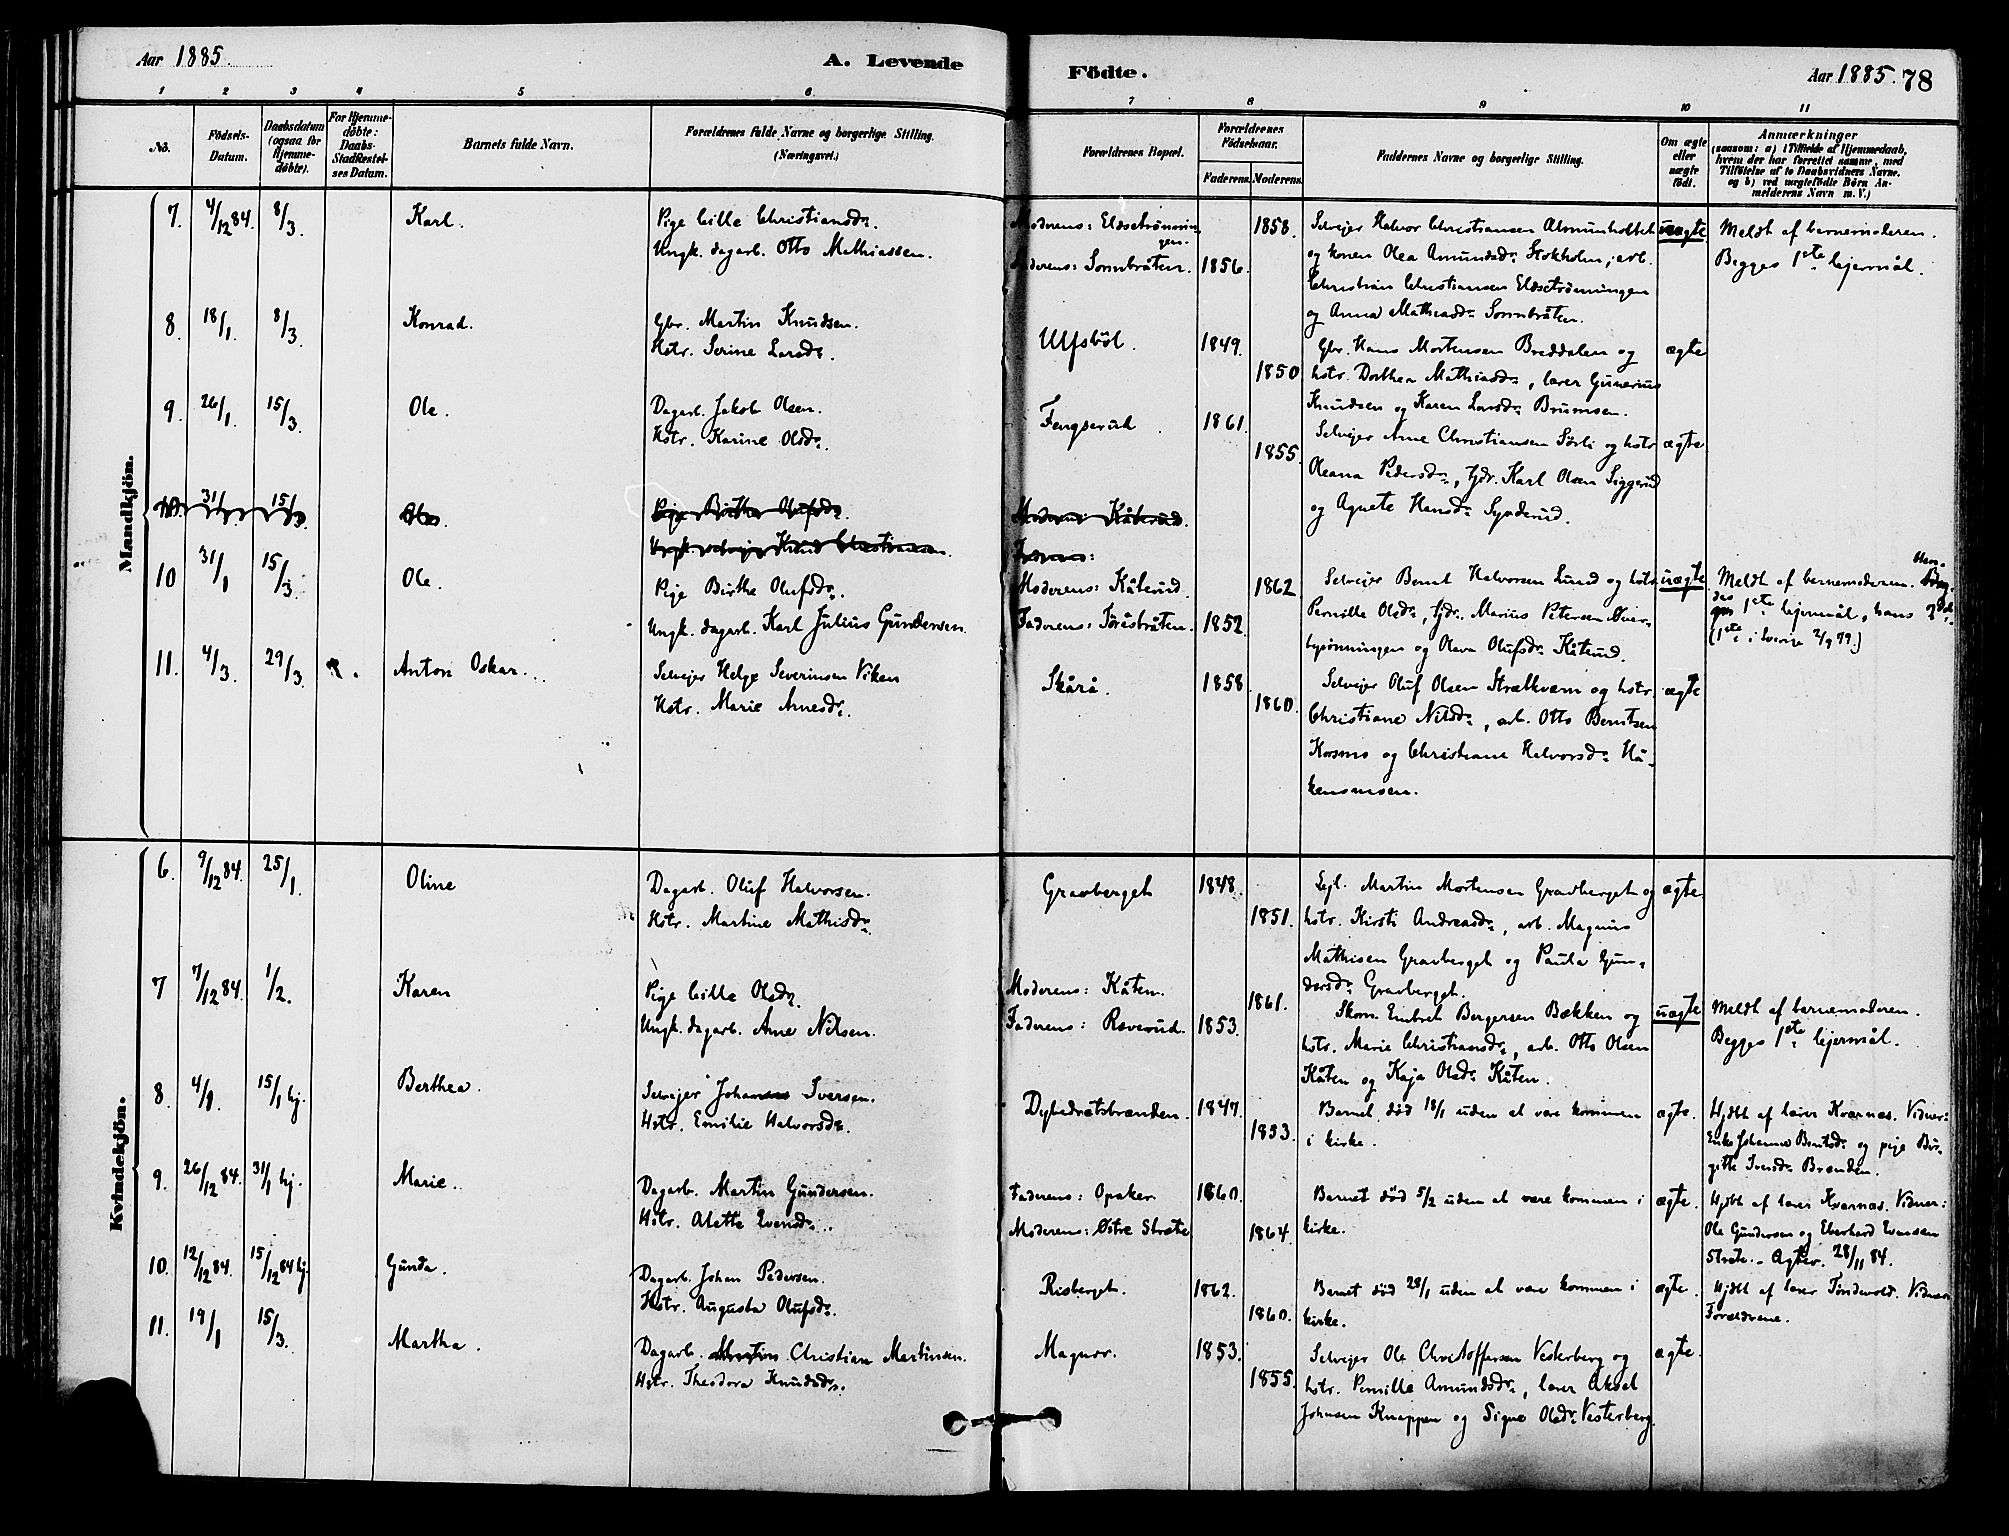 Aar 1885.
A. Levende
Födte.
Aar 1885. 78
1 2 3 4 5 6 7 8 9 10 11
No.
Födsels-
Datum.
Daabsdatum
(ogsaa for
Hjemme-
döbte).
For Hjemme-
döbte:
Daabs-
Stadfæstel-
ses Datum.
Barnets fulde Navn.
Forældrenes fulde Navne og borgerlige Stilling.
(Næringsvei.)
Forældrenes Bopæl.
Forældrenes
Födselsaar.
Faderens. Moderens.
Faddernes Navne og borgerlige Stilling.
Om ægte
eller
uægte
födt.
Anmærkninger
(saasom: a) i Tilfælde af Hjemmedaab,
hvem der har forrettet samme, med
Tilföielse af to Daabsvidners Navne.
og b) ved uægtefödte Börn An-
melderens Navn m. V.)
Mandkjön.
7. 4/12 84. 8/3. Karl.
Pige Cille Christiansdr.
Ungk. dagarb. Otto Mathiassen.
Moderens: Eldsetrønnin-
gen.
Faderens: Sonnbråten. 1856. 1858.
Selvejer Halvor Christiansen Almunholtet
og konen Olea Amundsdr. Stokholm, arb.
Christian Christiansen Eldsetrønningen
og Anna Mathiasdr. Sonnbråten.
uægte
Meldt af barnemoderen.
Begges 1ste lejermål.
8. 18/1. 8/3. Konrad.
Gbr. Martin Knudsen.
Hstr. Serine Larsdr.
Ulfsböl. 1849. 1850
Gbr. Hans Mortensen Breddalen og
hstr. Dorthea Mathiasdr., lærer Gunerius
Knudsen og Karen Larsdr. Brumsen.
ægte
9. 26/1. 15/3. Ole.
Dagarb. Jakob Olsen.
Hstr. Karine Olsdr.
Fengserud. 1861. 1855.
Selvejer Arne Christiansen Sörli og hstr.
Oleana Pedersdr., tjdr. Karl Olsen Siggerud
og Agnete Hansdr. Synderud.
ægte
10. 31/1. 15/3. Ole.
Pige Birthe Olufsdr.
Ungk. selvejer Knud Christiansen.
Moderens: Kåterud.
Faderens:
10 31/1 15/3. Ole
Pige Birthe Olufsdr.
Ungk. dagarb. Karl Julius Gundersen.
Moderens: Kåterud.
Faderens: Toråsbråten. 1852. 1862
Selvejer Bernt Halvorsen Lund og hstr.
Pernille Olsdr., tjdr. Marius Petersen Over-
bysønningen og Olava Olufsdr. Kåterud.
uægte
Meldt af barnemoderen. Hen-
des 1ste lejermål, hans 2det.
(1ste i Sverige 2/9 79.)
11. 4/3. 29/3. Anton Oskar.
Selvejer Helge Severinsen Viken
Hstr. Marie Arnesdr.
Skårå. 1858 1860.
Selvejer Oluf Olsen Strælkvern og hstr.
Christiane Nilsdr., arb. Otto Berntsen
Kosmo og Christiane Halvorsdr. Hå-
kensmoen.
ægte
Kvindekjön.
6. 9/12 84. 25/1 Oline
Dagarb. Oluf Halvorsen.
Hstr. Martine Mathisdr.
Gravberget 1848. 1851.
Lejl. Martin Mortensen Gravberget og
hstr. Kirsti Andreasdr., arb. Magnus
Mathisen Gravberget og Paula Gun-
dersdr. Gravberget.
ægte.
7 7/12 84. 1/2. Karen
Pige Cille Olsdr.
Ungk. dagarb. Arne Nilsen.
Moderens: Kåten.
Faderens: Røverud. 1853. 1861.
Skom. Embret Bergersen Bækken og
hstr. Marie Christiansdr., arb. Otto Olsen
Kåten og Kaja Olsdr. Kåten.
uægte
Meldt af barnemoderen.
Begges 1ste lejermål.
8. 4/1. 15/1 hj. Berthea.
Selvejer Johannes Iversen.
Hstr. Emilie Halvorsdr.
Dybedrætsbrænden. 1847. 1853.
Barnet död 18/1 uden at være kommen
i kirke.
ægte.
Hjdbt af lærer Kværnæs. Vidner:
Enke Johanne Berntsdr. og pige Bir-
gitte Iversdr. Brænden.
9. 26/12 84. 31/1 hj. Marie.
Dagarb. Martin Gundersen.
Hstr. Alette Evensdr.
Faderens: Opaker. 1860.
Moderens: Østre Stræte 1864.
Barnet död 5/2 uden at være kommen i
kirke.
ægte.
Hjdbt af lærer Kværnæs. Vidner:
Ole Gundersen og Eberhard Evensen
Stræte. Agtev. 28/11 84.
10. 12/12 84. 15/12 84 hj. Gunda.
Dagarb. Johan Pedersen.
Hstr. Augusta Olufsdr.
Risberget. 1862. 1860.
Barnet död 28/1 uden at være kommen i
kirke.
ægte.
Hjdbt af lærer Tøndevold. Vidner:
Forældrene.
11. 19/1 15/3. Martha.
Dagarb. Martin Christian Martinsen.
Hstr. Theodora Knudsdr.
Magnor. 1853. 1855.
Selvejer Ole Christoffersen Vesterberg og
hstr. Pernille Amundsdr., lærer Aksel
Johnsen Knappen og Signe Olsdr. Vesterberg.
ægte.